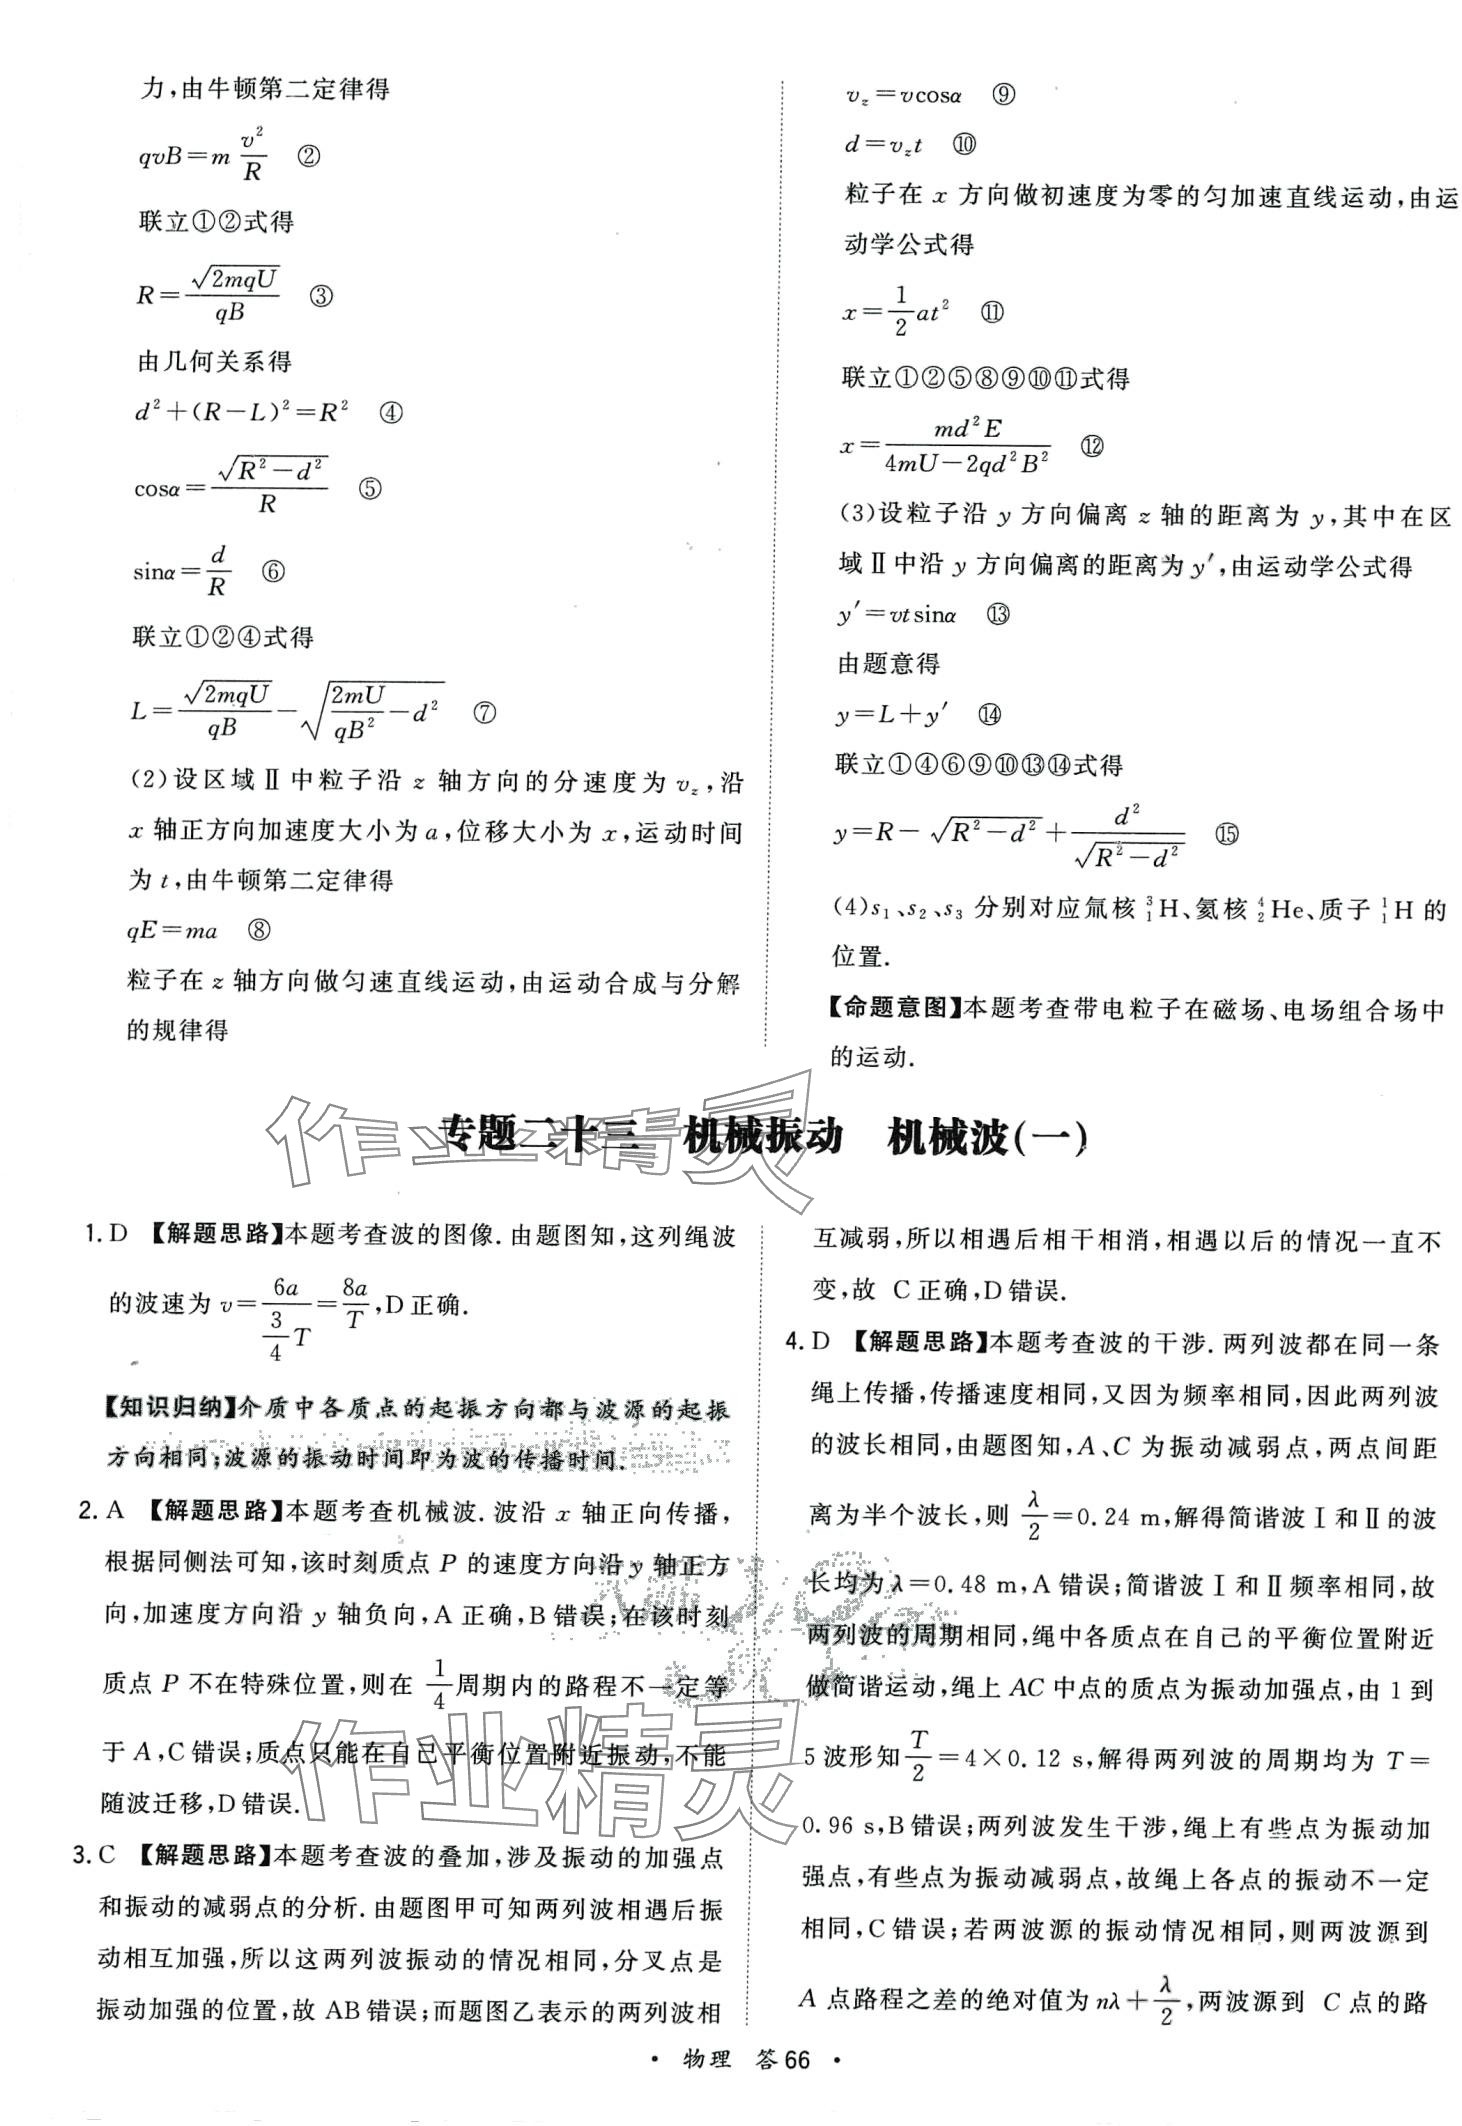 力,由牛顿第二定律得
qvB=m v²/R ②
联立①②式得
R=√(2mqU)/(qB) ③
由几何关系得
d²+(R-L)²=R² ④
cosα=√(R²-d²)/R ⑤
sinα=d/R ⑥
联立①②④式得
L=√(2mqU)/(qB)-√(2mU/(qB²)-d²) ⑦
(2)设区域Ⅱ中粒子沿 z 轴方向的分速度为 v_z,沿
x 轴正方向加速度大小为 a,位移大小为 x,运动时间
为 t,由牛顿第二定律得
qE=ma ⑧
粒子在 z 轴方向做匀速直线运动,由运动合成与分解
的规律得
v_z=vcosα ⑨
d=v_z t ⑩
粒子在 x 方向做初速度为零的匀加速直线运动,由运
动学公式得
x=1/2 at² ⑪
联立①②⑤⑧⑨⑩⑪式得
x=md²E/(4mU-2qd²B²) ⑫
(3)设粒子沿 y 方向偏离 z 轴的距离为 y,其中在区
域Ⅱ中沿 y 方向偏离的距离为 y′,由运动学公式得
y′=vtsinα ⑬
由题意得
y=L+y′ ⑭
联立①④⑥⑨⑩⑬⑭式得
y=R-√(R²-d²)+d²/√(R²-d²) ⑮
(4)s₁、s₂、s₃ 分别对应氚核 ³₁H、氦核 ⁴₂He、质子 ¹₁H 的
位置.
【命题意图】本题考查带电粒子在磁场、电场组合场中
的运动.
专题二十三 机械振动 机械波(一)
1. D 【解题思路】本题考查波的图像.由题图知,这列绳波
的波速为 v=6a/(3/4 T)=8a/T,D正确.
【知识归纳】介质中各质点的起振方向都与波源的起振
方向相同;波源的振动时间即为波的传播时间.
2. A 【解题思路】本题考查机械波.波沿 x 轴正向传播,
根据同侧法可知,该时刻质点 P 的速度方向沿 y 轴正方
向,加速度方向沿 y 轴负向,A 正确,B 错误;在该时刻
质点 P 不在特殊位置,则在 1/4 周期内的路程不一定等
于 A,C 错误;质点只能在自己平衡位置附近振动,不能
随波迁移,D 错误.
3. C 【解题思路】本题考查波的叠加,涉及振动的加强点
和振动的减弱点的分析.由题图甲可知两列波相遇后振
动相互加强,所以这两列波振动的情况相同,分叉点是
振动加强的位置,故 AB 错误;而题图乙表示的两列波相
互减弱,所以相遇后相干相消,相遇以后的情况一直不
变,故 C 正确,D 错误.
4. D 【解题思路】本题考查波的干涉.两列波都在同一条
绳上传播,传播速度相同,又因为频率相同,因此两列波
的波长相同,由题图知,A、C 为振动减弱点,两点间距
离为半个波长,则 λ/2=0.24 m,解得简谐波Ⅰ和Ⅱ的波
长均为 λ=0.48 m,A 错误;简谐波Ⅰ和Ⅱ频率相同,故
两列波的周期相同,绳中各质点在自己的平衡位置附近
做简谐运动,绳上 AC 中点的质点为振动加强点,由 1 到
5 波形知 T/2=4×0.12 s,解得两列波的周期均为 T=
0.96 s,B 错误;两列波发生干涉,绳上有些点为振动加
强点,有些点为振动减弱点,故绳上各点的振动不一定
相同,C 错误;若两波源的振动情况相同,则两波源到
A 点路程之差的绝对值为 nλ+λ/2,两波源到 C 点的路
· 物理 答66 ·
作业精灵
作业精灵